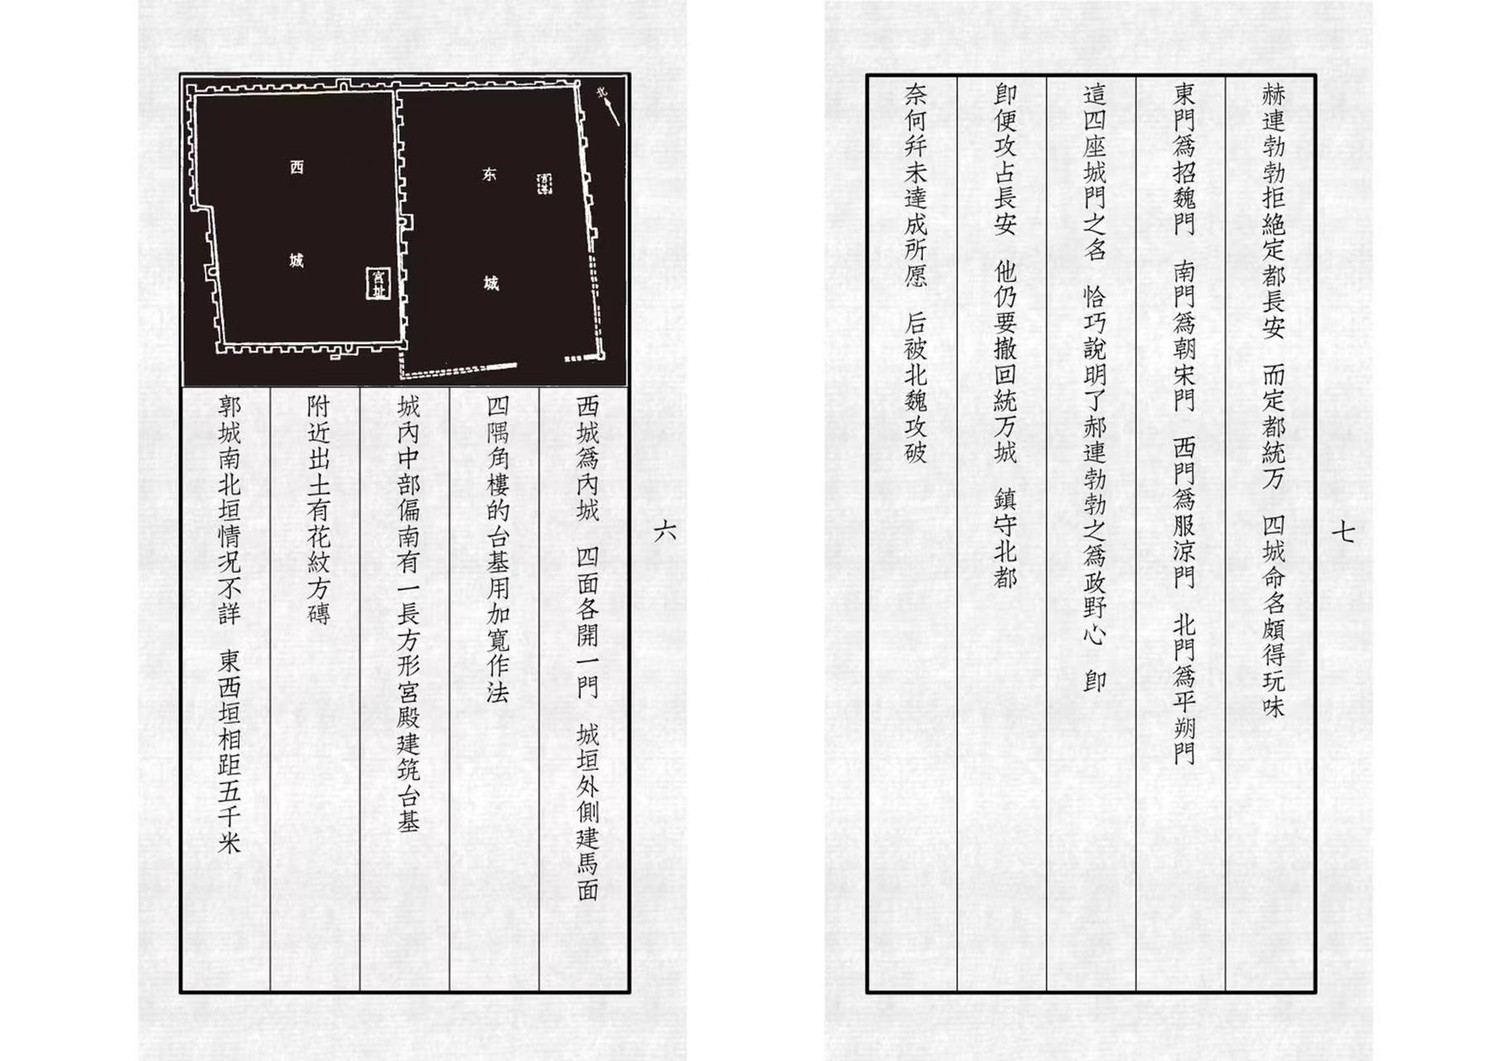 北
西城
东城
宮址
六
西城爲內城　四面各開一門　城垣外側建馬面
四隅角樓的台基用加寬作法
城內中部偏南有一長方形宮殿建筑台基
附近出土有花紋方磚
郭城南北垣情况不詳　東西垣相距五千米
七
赫連勃勃拒絶定都長安　而定都統万　四城命名頗得玩味
東門爲招魏門　南門爲朝宋門　西門爲服涼門　北門爲平朔門
這四座城門之名　恰巧說明了郝連勃勃之爲政野心　卽
卽便攻占長安　他仍要撤回統万城　鎮守北都
奈何幷未達成所愿　后被北魏攻破